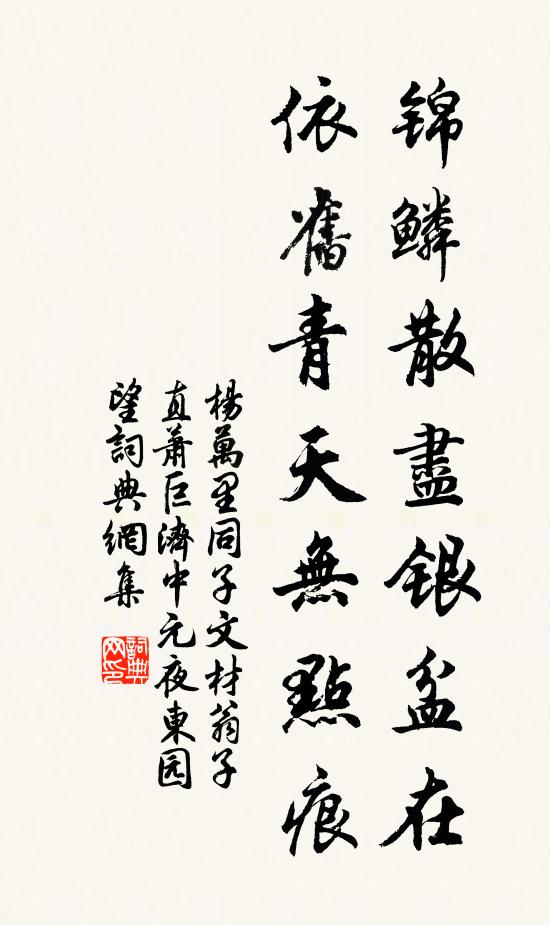 锦鳞散盡银盆在
依舊青天無點痕
楊萬里同子文材翁子
直蕭巨濟中元夜東园
望詞典網集
詞典
网印